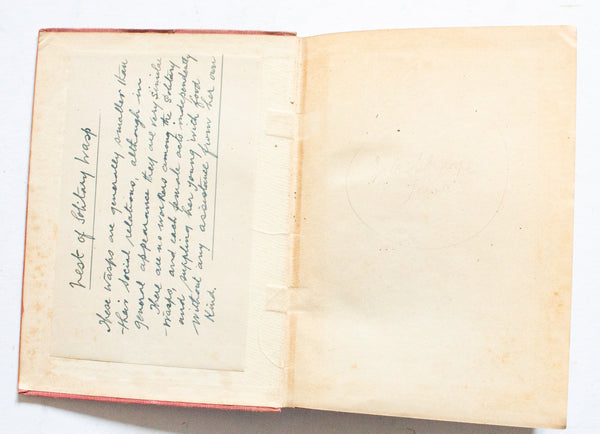 Nest of Solitary Wasp
These wasps are generally smaller than
their social relations, although in
general appearance they are very similar
There are no workers among the Solitary
wasps, and each female acts independently
and suppling her young with food
without any assistance from her own
Kind.